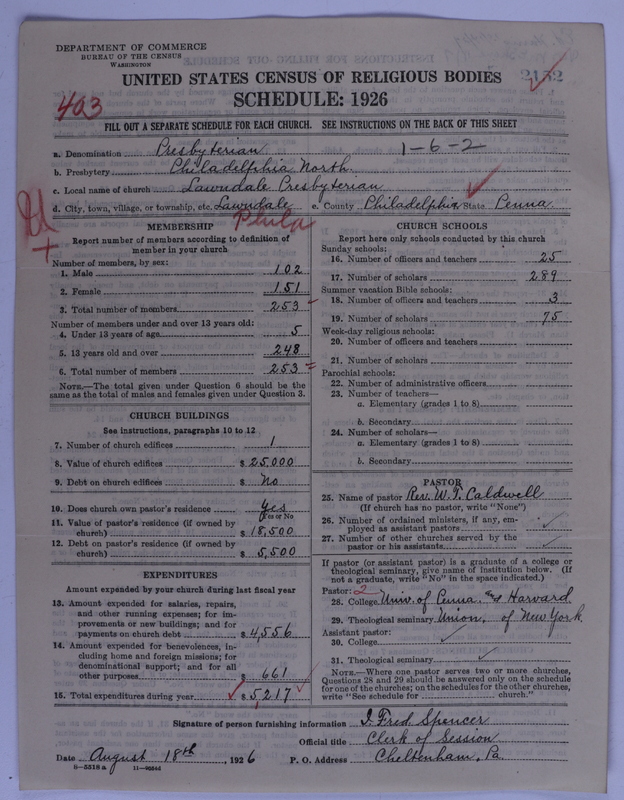 DEPARTMENT OF COMMERCE
BUREAU OF THE CENSUS
WASHINGTON
UNITED STATES CENSUS OF RELIGIOUS BODIES
2152
SCHEDULE: 1926
403
FILL OUT A SEPARATE SCHEDULE FOR EACH CHURCH. SEE INSTRUCTIONS ON THE BACK OF THIS SHEET
a. Denomination Presbyterian 1-6-2
b. Presbytery Philadelphia North
c. Local name of church Lawndale Presbyterian
d. City, town, village, or township, etc. Lawndale e. County Philadelphia State Penna
Phila
MEMBERSHIP
Report number of members according to definition of
member in your church
Number of members, by sex:
1. Male 102
2. Female 151
3. Total number of members 253
Number of members under and over 13 years old:
4. Under 13 years of age 5
5. 13 years old and over 248
6. Total number of members 253
NOTE.—The total given under Question 6 should be the
same as the total of males and females given under Question 3.
CHURCH BUILDINGS
See instructions, paragraphs 10 to 12
7. Number of church edifices 1
8. Value of church edifices $ 25,000
9. Debt on church edifices $ No
10. Does church own pastor's residence Yes
(Yes or No
11. Value of pastor's residence (if owned by
church) $ 18,500
12. Debt on pastor's residence (if owned by
church) $ 5,500
EXPENDITURES
Amount expended by your church during last fiscal year
13. Amount expended for salaries, repairs,
and other running expenses; for im-
provements or new buildings; and for
payments on church debt $ 4,556
14. Amount expended for benevolences, in-
cluding home and foreign missions; for
denominational support; and for all
other purposes $ 661
15. Total expenditures during year $ 5,217
CHURCH SCHOOLS
Report here only schools conducted by this church
Sunday schools:
16. Number of officers and teachers 25
17. Number of scholars 289
Summer vacation Bible schools:
18. Number of officers and teachers 3
19. Number of scholars 75
Week-day religious schools:
20. Number of officers and teachers
21. Number of scholars
Parochial schools:
22. Number of administrative officers
23. Number of teachers—
a. Elementary (grades 1 to 8)
b. Secondary
24. Number of scholars—
a. Elementary (grades 1 to 8)
b. Secondary
PASTOR
25. Name of pastor Rev. W. T. Caldwell
(If church has no pastor, write "None")
26. Number of ordained ministers, if any, em-
ployed as assistant pastors
27. Number of other churches served by the
pastor or his assistants
If pastor (or assistant pastor) is a graduate of a college or
theological seminary, give name of institution below. (If
not a graduate, write "No" in the space indicated.)
Pastor: 2
28. College Univ. of Penna. and Harvard
29. Theological seminary Union, of New York.
Assistant pastor:
30. College
31. Theological seminary
NOTE.—Where one pastor serves two or more churches,
Questions 28 and 29 should be answered only on the schedule
for one of the churches; on the schedules for the other churches,
write "See schedule for church."
Signature of person furnishing information J. Fred. Spencer
Official title Clerk of Session
Date August 18th, 1926 P. O. Address Cheltenham, Pa
8-5518 a